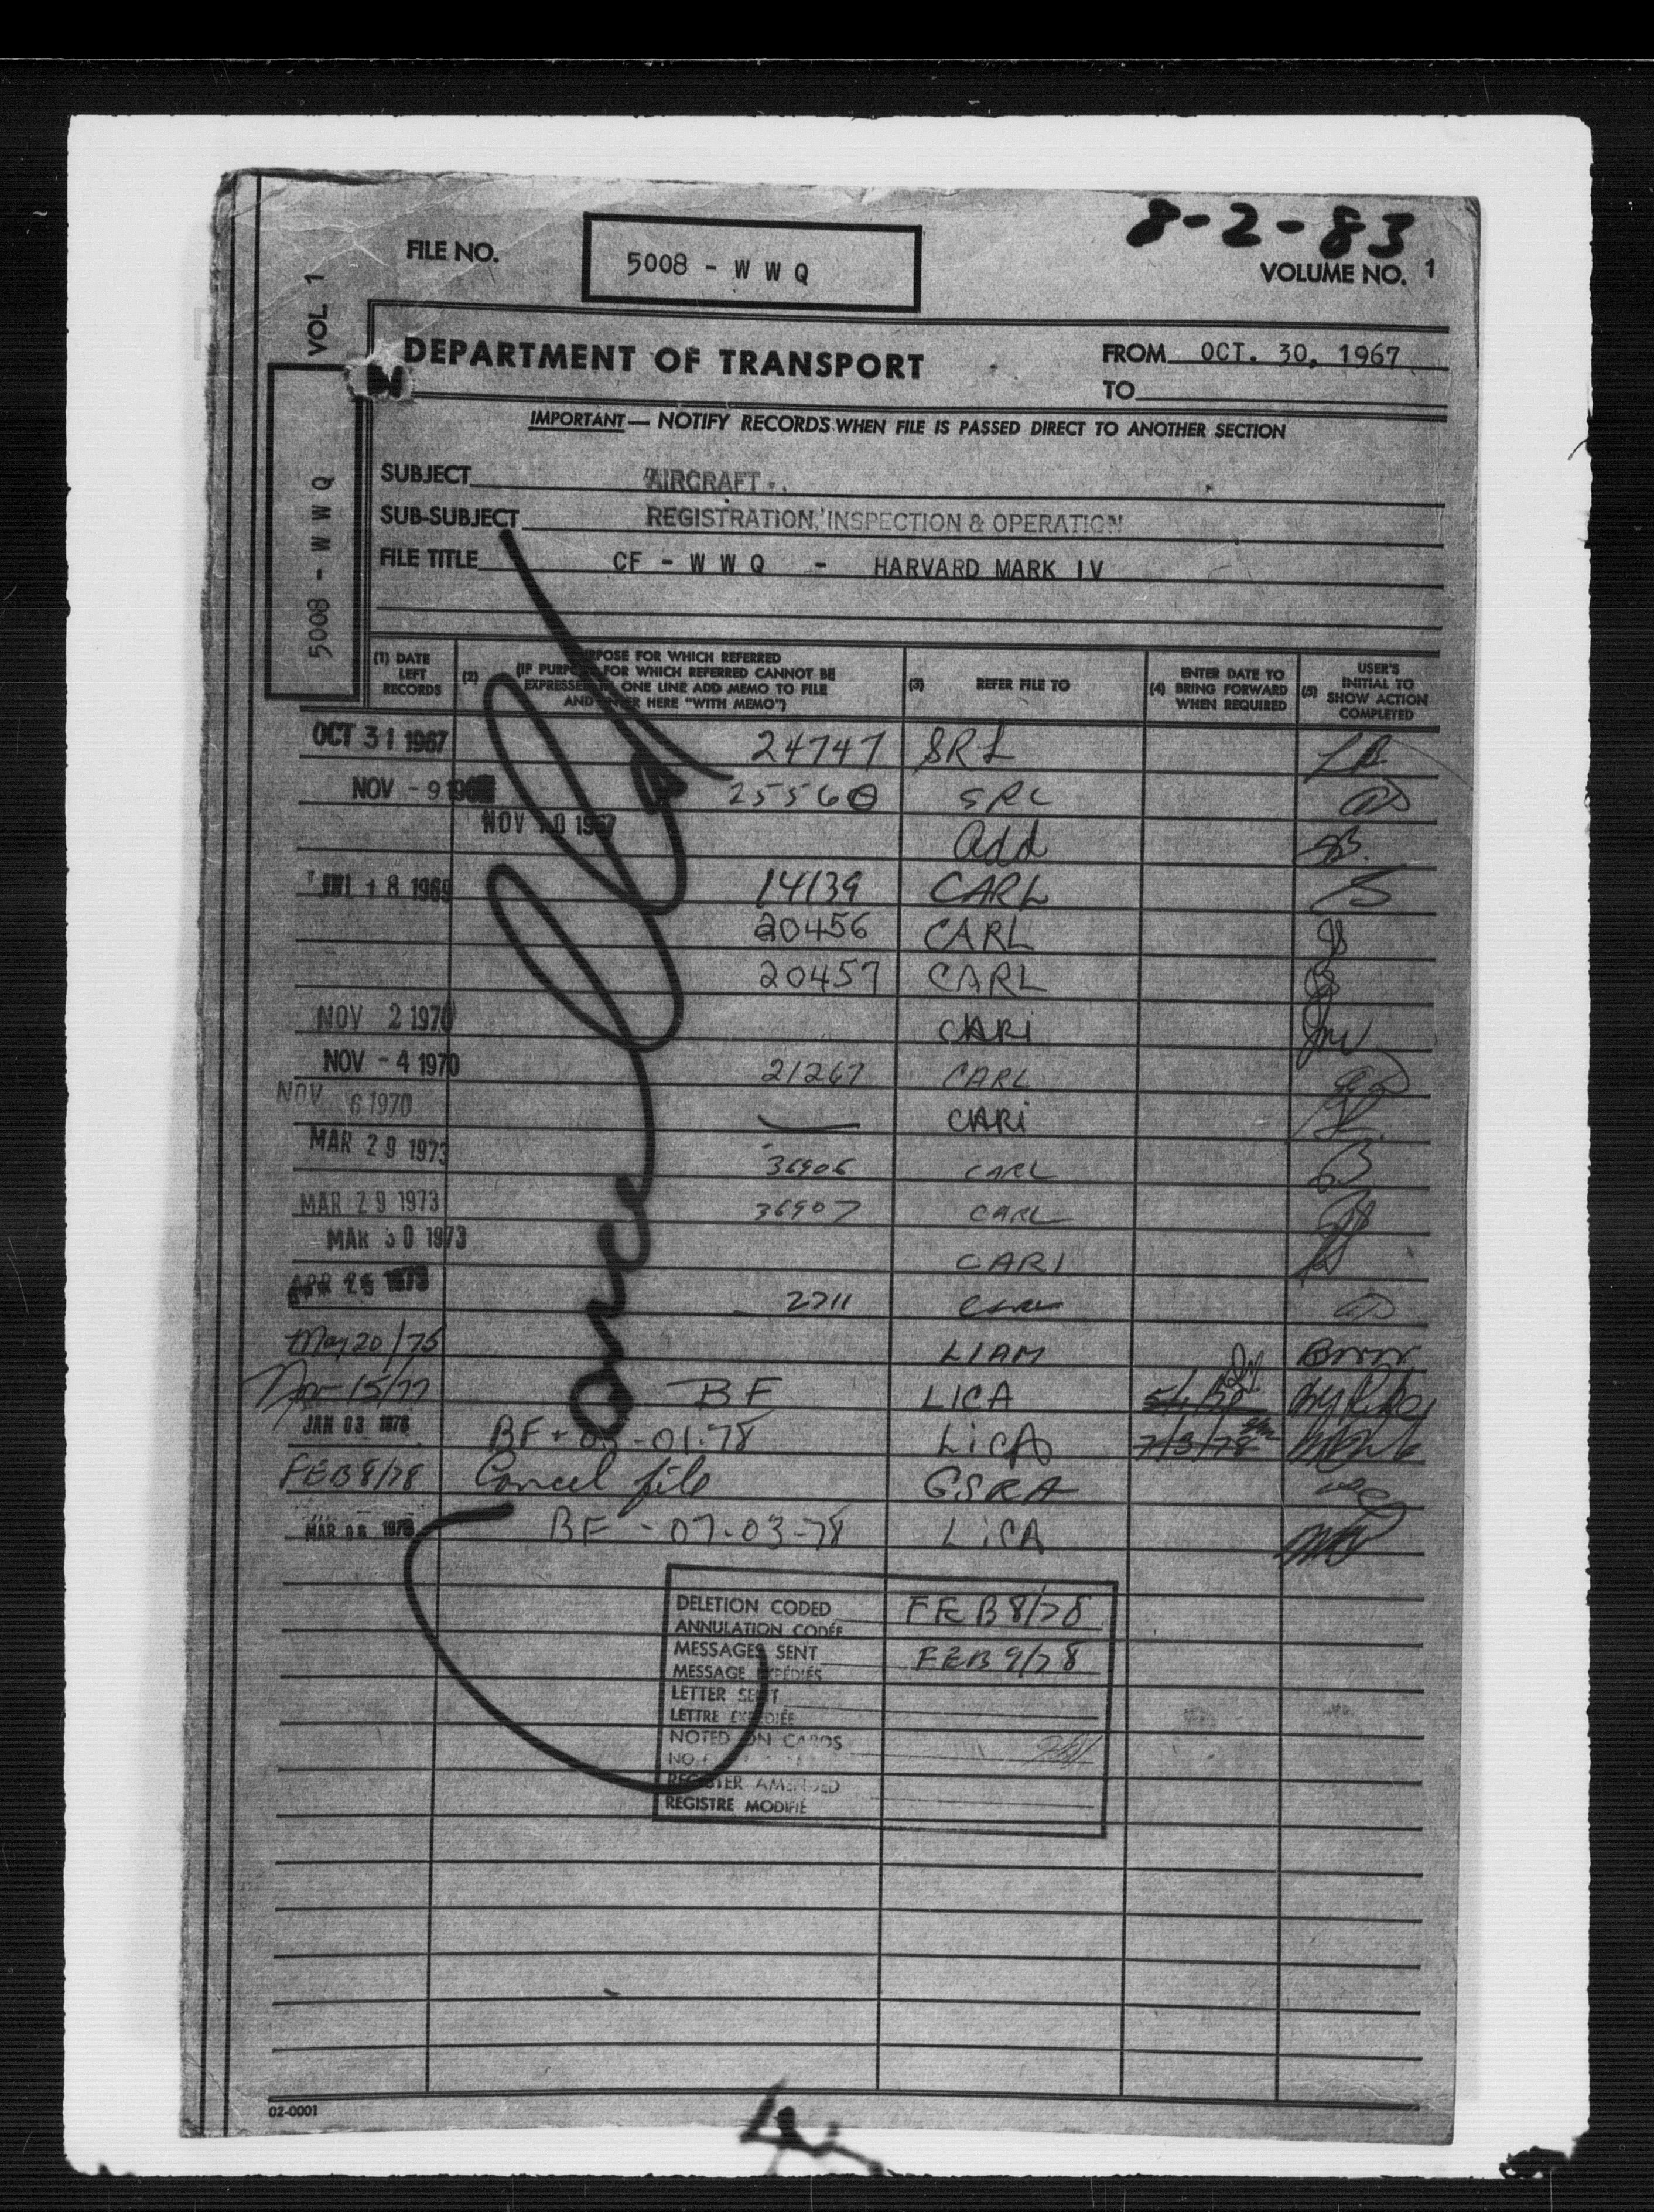 8-2-83
FILE NO. 5008 - W W Q
VOLUME NO. 1
VOL 1
5008 - W W Q
DEPARTMENT OF TRANSPORT
FROM OCT. 30, 1967
TO
IMPORTANT — NOTIFY RECORDS WHEN FILE IS PASSED DIRECT TO ANOTHER SECTION
SUBJECT AIRCRAFT
SUB-SUBJECT REGISTRATION, INSPECTION & OPERATION
FILE TITLE CF - W W Q - HARVARD MARK IV
(1) DATE LEFT RECORDS
(2) PURPOSE FOR WHICH REFERRED
(IF PURPOSE FOR WHICH REFERRED CANNOT BE
EXPRESSED IN ONE LINE ADD MEMO TO FILE
AND ENTER HERE "WITH MEMO")
(3) REFER FILE TO
(4) ENTER DATE TO BRING FORWARD WHEN REQUIRED
(5) USER'S INITIAL TO SHOW ACTION COMPLETED
OCT 31 1967 24747 SRL
NOV - 9 1967 25560 SRL
NOV 10 1967
Add
18 1969 14139 CARL
20456 CARL
20457 CARL
NOV 2 1970 CARi
NOV - 4 1970 21267 CARL
NOV 6 1970 CARi
MAR 29 1973 36906 CARL
MAR 29 1973 36907 CARL
MAR 30 1973 CARI
APR 25 1973 2711
May 20/75 LIAM
Apr 15/77 BF LICA
JAN 03 1978 BF - 03-01-78 LiCA 7/3/78
FEB 8/78 Cancel file GSRA
MAR 06 1978 BF - 07-03-78 LiCA
DELETION CODED FEB 8/78
ANNULATION CODÉE
MESSAGES SENT FEB 9/78
MESSAGE EXPÉDIÉS
LETTER SENT
LETTRE EXPÉDIÉE
NOTED ON CARDS
REGISTER AMENDED
REGISTRE MODIFIÉ
02-0001